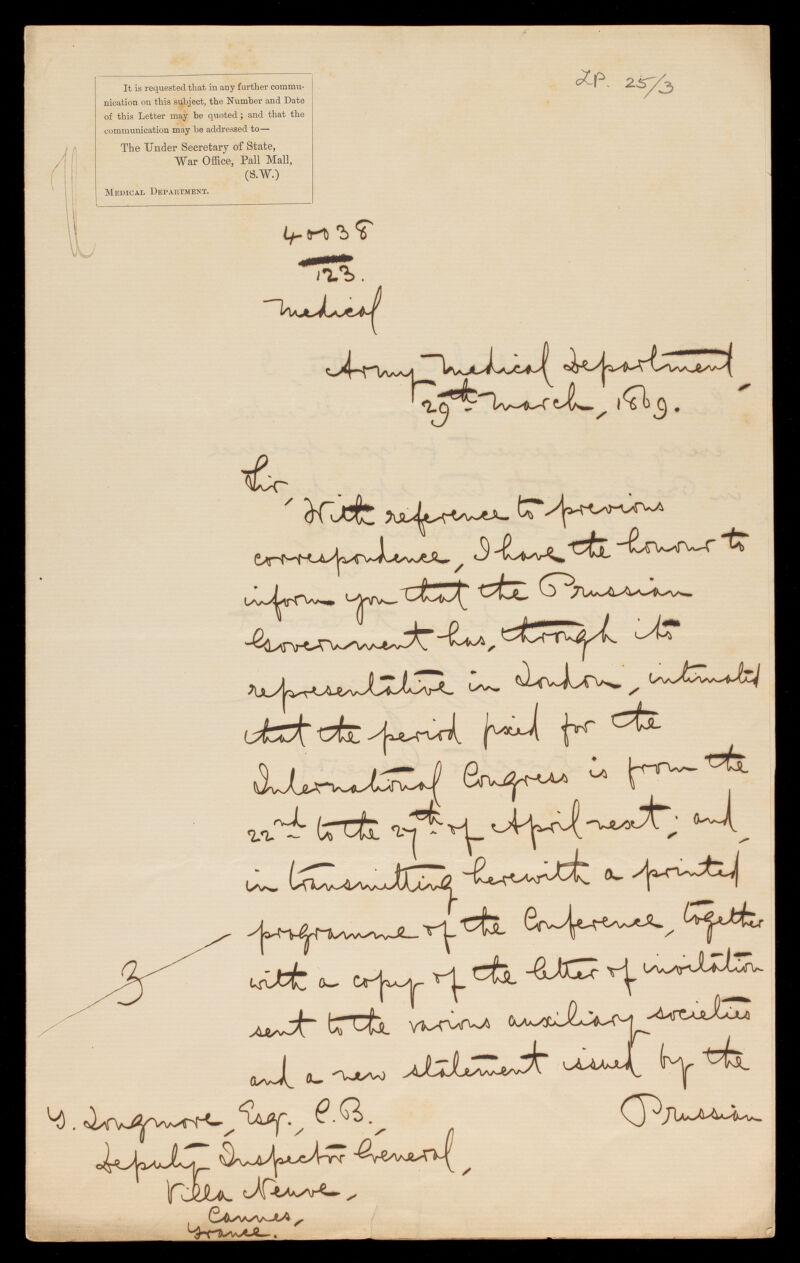 LP. 25/3
It is requested that in any further commu-
nication on this subject, the Number and Date
of this Letter may be quoted; and that the
communication may be addressed to—
The Under Secretary of State,
War Office, Pall Mall,
(S.W.)
MEDICAL DEPARTMENT.
40038
123.
Medical
Army Medical Department,
29th March, 1869.
Sir,
With reference to previous
correspondence, I have the honour to
inform you that the Prussian
Government has, through its
representative in London, intimated
that the period fixed for the
International Congress is from the
22nd to the 27th of April next; and,
in transmitting herewith a printed
programme of the Conference, together
with a copy of the letter of invitation
sent to the various auxiliary societies
and a new statement issued by the
Prussian
3
T. Longmore, Esqr., C.B.,
Deputy Inspector General,
Villa Neuve,
Cannes,
France.